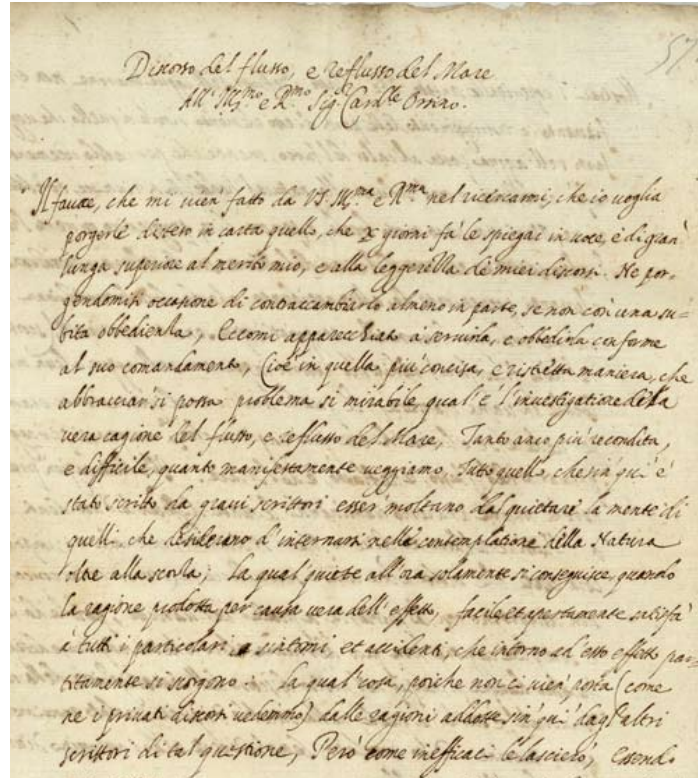 57
Discorso del flusso, e reflusso del Mare
All' Ill.mo e R.mo Sig. Card.le Orsino.
Il favore, che mi vien fatto da VS. Ill.ma e R.ma nel ricercarmi, che io voglia
porgerle disteso in carta quello, che X giorni fa' le spiegai in voce, è di gran'
lunga superiore al merito mio, e alla leggerezza de miei discorsi. Ne por-
gendomisi occasione di contraccambiarlo almeno in parte, se non con una su-
bita obbedienza, Eccomi apparecchiato à servirla, e obbedirla conforme
al suo comandamento, Cioè in quella più concisa, e ristretta maniera, che
abbracciar si possa problema si mirabile, qual'è l'investigatione della
vera cagione del flusso, e reflusso del Mare, Tanto anco più recondita,
e difficile, quanto manifestamente veggiamo Tutto quello, che sin' qui è
stato scritto da gravi scrittori esser molto lontano dal quietare la mente di
quelli che desiderano d'internarsi nella contemplatione della Natura
oltre alla scorza; La qual quiete all'ora solamente si conseguisce, quando
la ragione prodotta per causa vera dell'effetto, facile et apertamente satisfà
à tutti i particolari, sintomi, et accidenti, che intorno ad esso effetto par-
titamente si scorgono. La qual' cosa, poiche non ci vien' porta (come
ne i privati discorsi vedemmo) dalle ragioni addotte sin' qui dagl'altri
scrittori di tal questione, Però come inefficaci le lascierò, essend